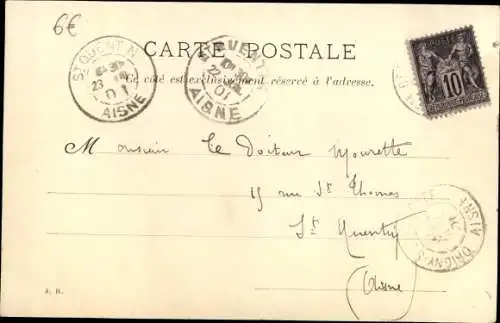 6€
CARTE POSTALE
Ce côté est exclusivement réservé à l'adresse.
ST QUENTIN
23
01
AISNE
22
01
AISNE
10
Monsieur le Docteur Mourette
15 rue St Thomas
St Quentin
(Aisne)
AISNE
ORIGNY-S
J. H.